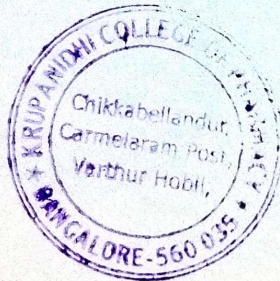 KRUPANIDHI COLLEGE OF PHARMACY
Chikkabellandur,
Carmelaram Post,
Varthur Hobli,
BANGALORE-560 035